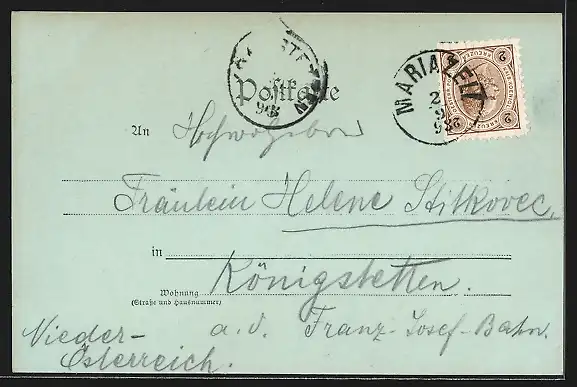 Postkarte
MARIAZELL
2
98
98
2 KREUZER 2
An Hochwohlgeboren
Fräulein Helene Stitkovec,
in Königstetten.
Wohnung
(Straße und Hausnummer)
a. d. Franz-Josef-Bahn.
Nieder-
Österreich.